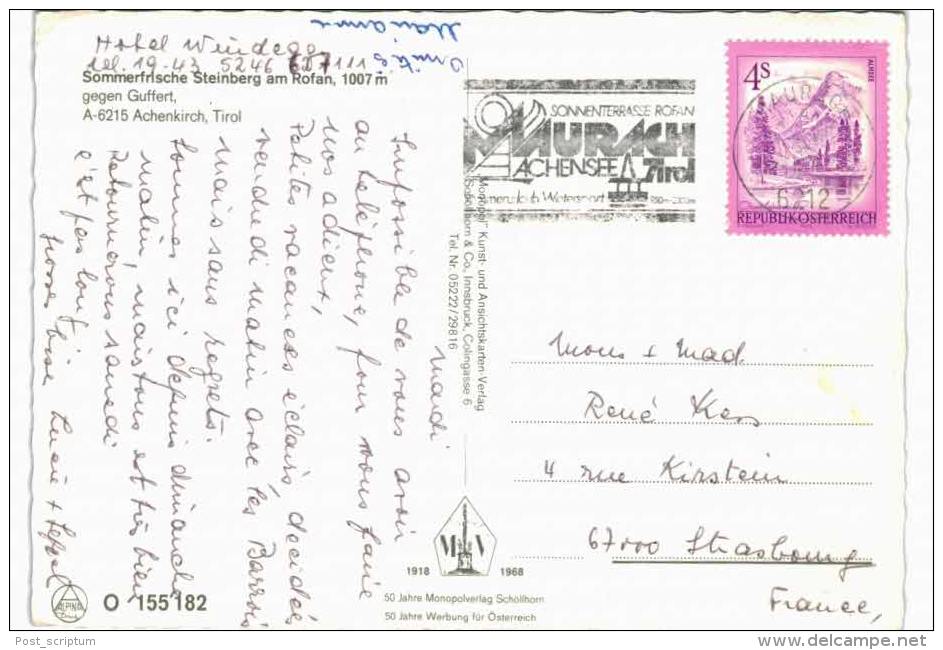 Hotel Windegg
tel. 19-43 5246
Amitiés
Marianne
Sommerfrische Steinberg am Rofan, 1007 m
gegen Guffert,
A-6215 Achenkirch, Tirol
Mardi
Impossible de vous avoir
au téléphone, pour vous faire
nos adieux,
Petites vacances éclairs, décidés
vendredi matin avec les Barrois
mais sans regrets.
Sommes ici depuis dimanche
matin, mais tous est très bien
Retournerons samedi
c'est pas long
Grosses bises
"Monopol" Kunst- und Ansichtskarten-Verlag
Schöllhorn & Co., Innsbruck, Colingasse 6
Tel. Nr. 05222/29816
SONNENTERRASSE ROFAN
MAURACH
ACHENSEE Tirol
4S
ALMSEE
6212
REPUBLIK ÖSTERREICH
Mons + Mad.
René Kes
4 rue Kirstein
67000 Strasbourg
France,
M V
1918 1968
50 Jahre Monopolverlag Schöllhorn
50 Jahre Werbung für Österreich
ALPINA
Druck
O 155182
Post_scriptum
delcampe.net